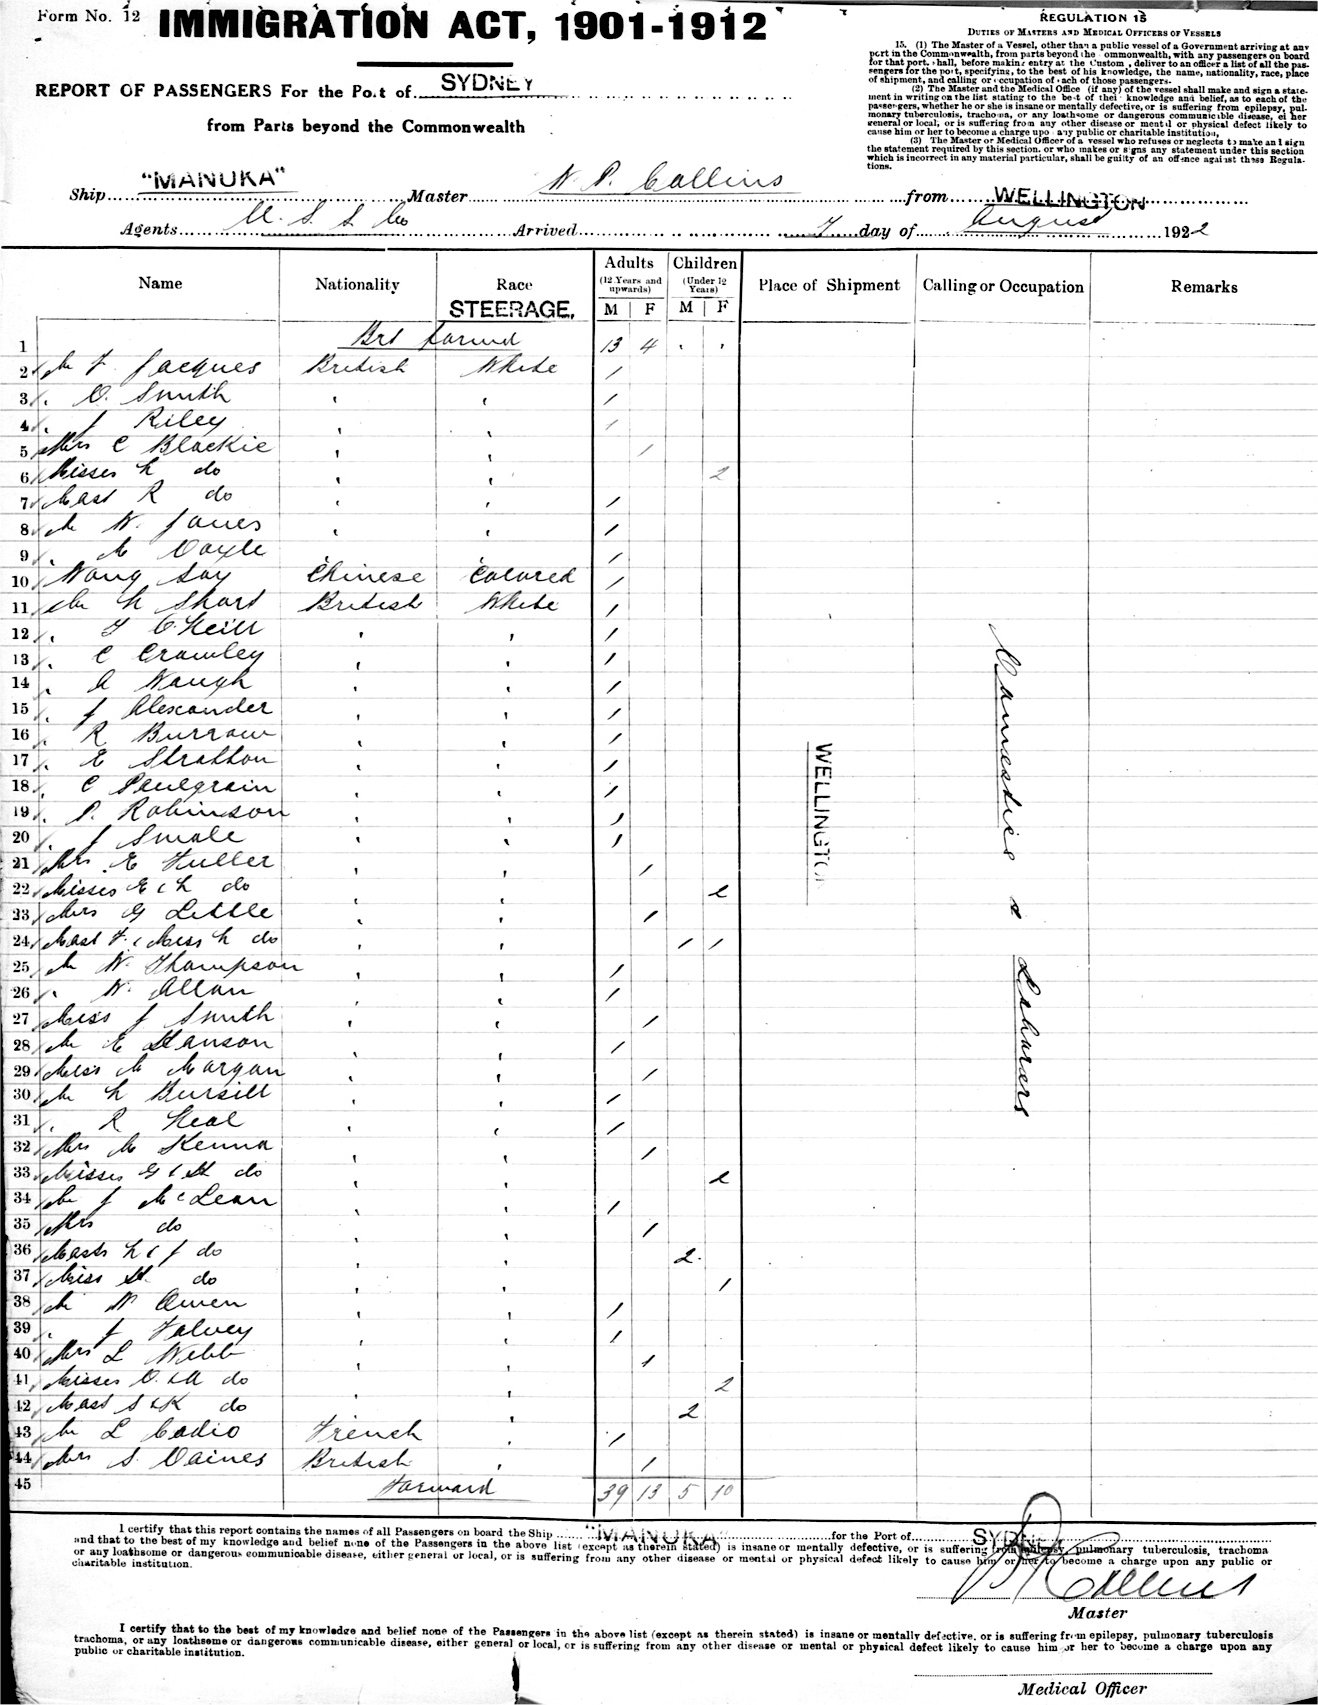 Form No. 12
IMMIGRATION ACT, 1901-1912
REGULATION 15
DUTIES OF MASTERS AND MEDICAL OFFICERS OF VESSELS
15. (1) The Master of a Vessel, other than a public vessel of a Government arriving at any
port in the Commonwealth, from parts beyond the Commonwealth, with any passengers on board
for that port, shall, before making entry at the Customs, deliver to an officer a list of all the pas-
sengers for the port, specifying, to the best of his knowledge, the name, nationality, race, place
of shipment, and calling or occupation of each of those passengers.
(2) The Master and the Medical Office (if any) of the vessel shall make and sign a state-
ment in writing on the list stating to the best of their knowledge and belief, as to each of the
passengers, whether he or she is insane or mentally defective, or is suffering from epilepsy, pul-
monary tuberculosis, trachoma, or any loathsome or dangerous communicable disease, either
general or local, or is suffering from any other disease or mental or physical defect likely to
cause him or her to become a charge upon any public or charitable institution,
(3) The Master or Medical Officer of a vessel who refuses or neglects to make and sign
the statement required by this section, or who makes or signs any statement under this section
which is incorrect in any material particular, shall be guilty of an offence against these Regula-
tions.
REPORT OF PASSENGERS For the Port of SYDNEY
from Parts beyond the Commonwealth
Ship "MANUKA" Master W. P. Collins from WELLINGTON
Agents U. S. S. Co Arrived 7 day of August 1922
Name Nationality Race Adults (12 Years and upwards) Children (Under 12 Years) Place of Shipment Calling or Occupation Remarks
STEERAGE, M F M F
1 Brt Forward 13 4 . .
2 Mr F Jacques British White /
3 " O. Smith " " /
4 " J Riley " " /
5 Mrs C Blackie " " /
6 Misses L do " " 2
7 Mast R do " " /
8 Mr W. Jones " " /
9 " M Doyle /
10 Wong Say Chinese Colored /
11 Mr L Short British White /
12 " T O'Neill " " /
13 " C Crowley " " /
14 " A Waugh " " /
15 " J Alexander " " /
16 " R Burrow " " /
17 " E Stratton " " /
18 " C " " /
19 " P. Robinson " " /
20 " J Smale " " /
21 Mrs E Fuller " " /
22 Misses E & L do " " 2
23 Mrs G Little " " /
24 Mast F. & Miss L do " " / /
25 Mr W. Thompson " " /
26 " W. Allan " " /
27 Miss J Smith " " /
28 Mr E Hanson " " /
29 Miss M Morgan " " /
30 Mr L Bursill " " /
31 " R Neal " " /
32 Mrs M Kenna " " /
33 Misses G & H do " " 2
34 Mr J McLean " " /
35 Mrs do " " /
36 Masts L & J do " " 2
37 Miss H. do " " /
38 Mr W Owen " " /
39 " J Falvey " " /
40 Mrs L Webb " " /
41 Misses O. & A do " " 2
42 Mast S & K do " " 2
43 Mr L Cadio French " /
44 Mrs S. Daines British " /
45 Forward 39 13 5 10
WELLINGTON
Domestics & Labourers
I certify that this report contains the names of all Passengers on board the Ship "MANUKA" for the Port of SYDNEY
and that to the best of my knowledge and belief none of the Passengers in the above list (except as therein stated) is insane or mentally defective, or is suffering from epilepsy, pulmonary tuberculosis, trachoma
or any loathsome or dangerous communicable disease, either general or local, or is suffering from any other disease or mental or physical defect likely to cause him or her to become a charge upon any public or
charitable institution.
W P Collins
Master
I certify that to the best of my knowledge and belief none of the Passengers in the above list (except as therein stated) is insane or mentally defective, or is suffering from epilepsy, pulmonary tuberculosis
trachoma, or any loathsome or dangerous communicable disease, either general or local, or is suffering from any other disease or mental or physical defect likely to cause him or her to become a charge upon any
public or charitable institution.
Medical Officer